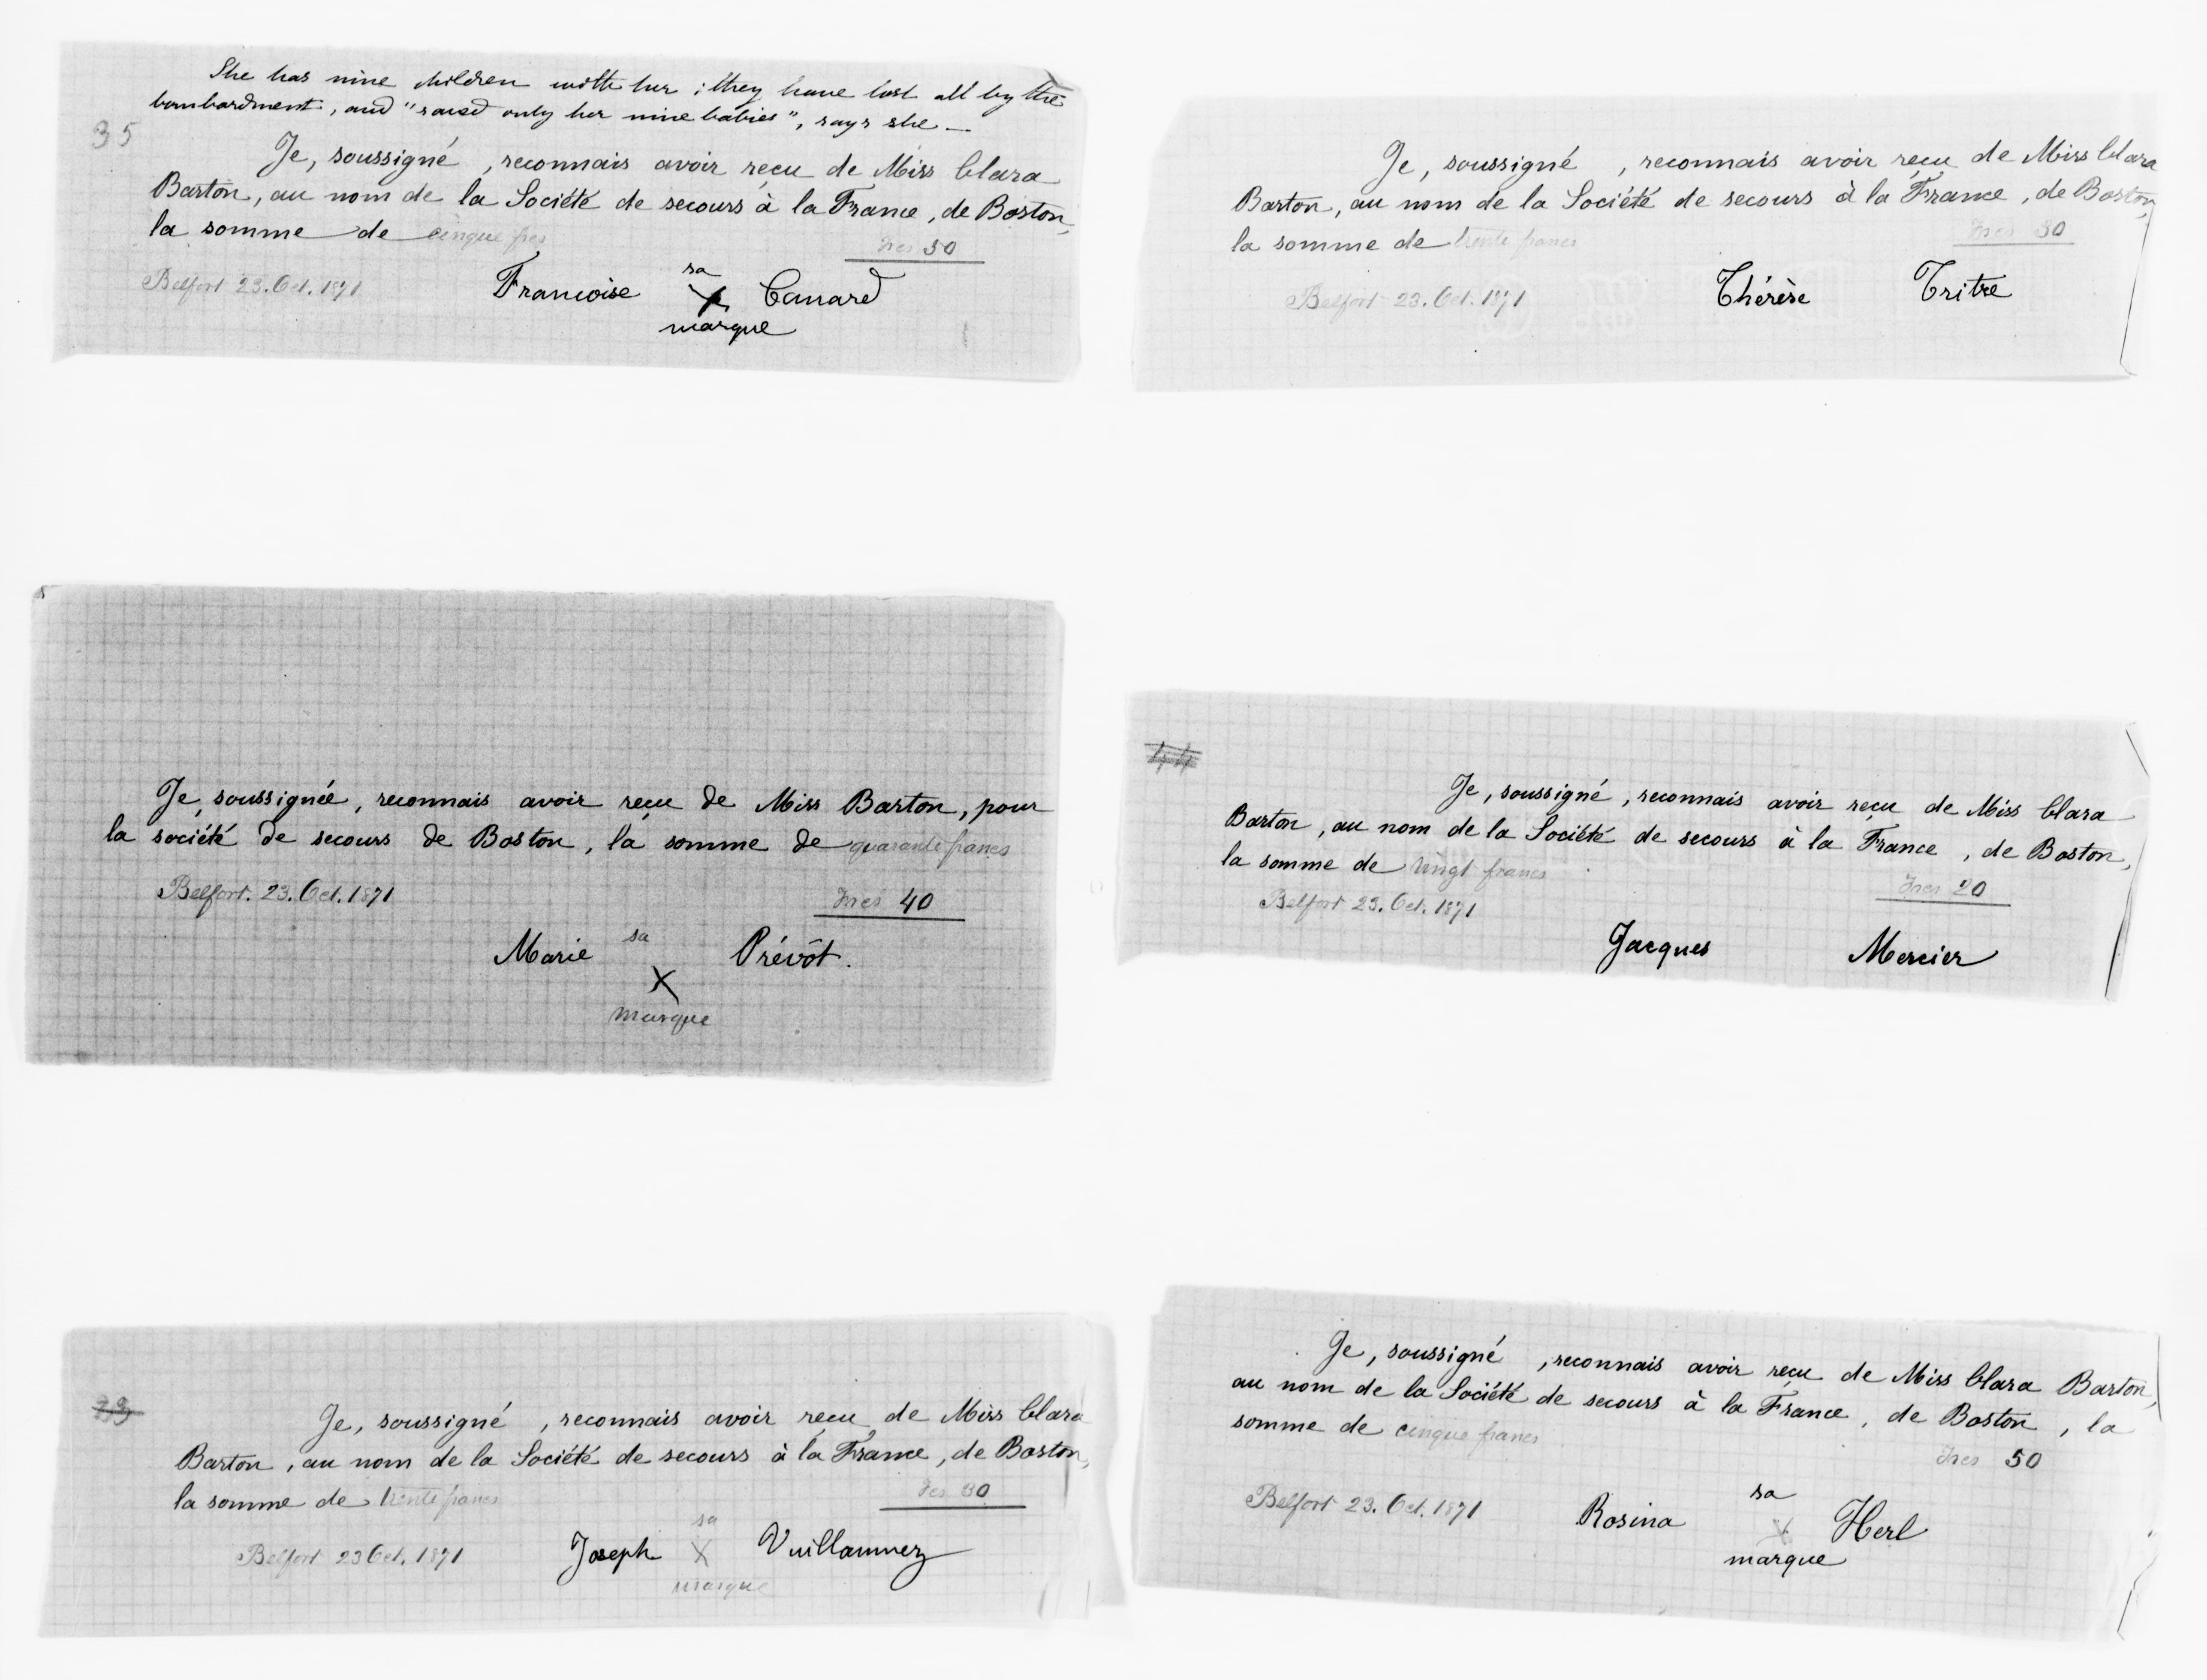 She has nine children with her ; they have lost all by the
bombardment, and "saved only her nine babies", says she —
35
Je, soussigné , reconnais avoir reçu de Miss Clara
Barton, au nom de la Société de secours à la France, de Boston,
la somme de cinque frcs
Frcs 50
Belfort 23. Oct. 1871
Francoise sa Canard
X
marque
Je, soussigné , reconnais avoir reçu de Miss Clara
Barton, au nom de la Société de secours à la France, de Boston,
la somme de trente francs
Frcs 30
Belfort 23. Oct. 1871
Thérèse Tritre
Je, soussignée, reconnais avoir reçu de Miss Barton, pour
la société de secours de Boston, la somme de quarante francs
Belfort. 23. Oct. 1871
Frcs 40
Marie sa Prévôt.
X
marque
44
Je, soussigné, reconnais avoir reçu de Miss Clara
Barton, au nom de la Société de secours à la France, de Boston,
la somme de vingt francs
Frcs 20
Belfort 23. Oct. 1871
Jacques Mercier
Je, soussigné , reconnais avoir reçu de Miss Clara
Barton, au nom de la Société de secours à la France, de Boston,
la somme de trente francs
Fcs 30
sa
Belfort 23 Oct. 1871 Joseph X Vuillaumez
marque
Je, soussigné , reconnais avoir reçu de Miss Clara Barton,
au nom de la Société de secours à la France, de Boston, la
somme de cinque francs
Frcs 50
Belfort 23. Oct. 1871
Rosina sa Herl
X
marque